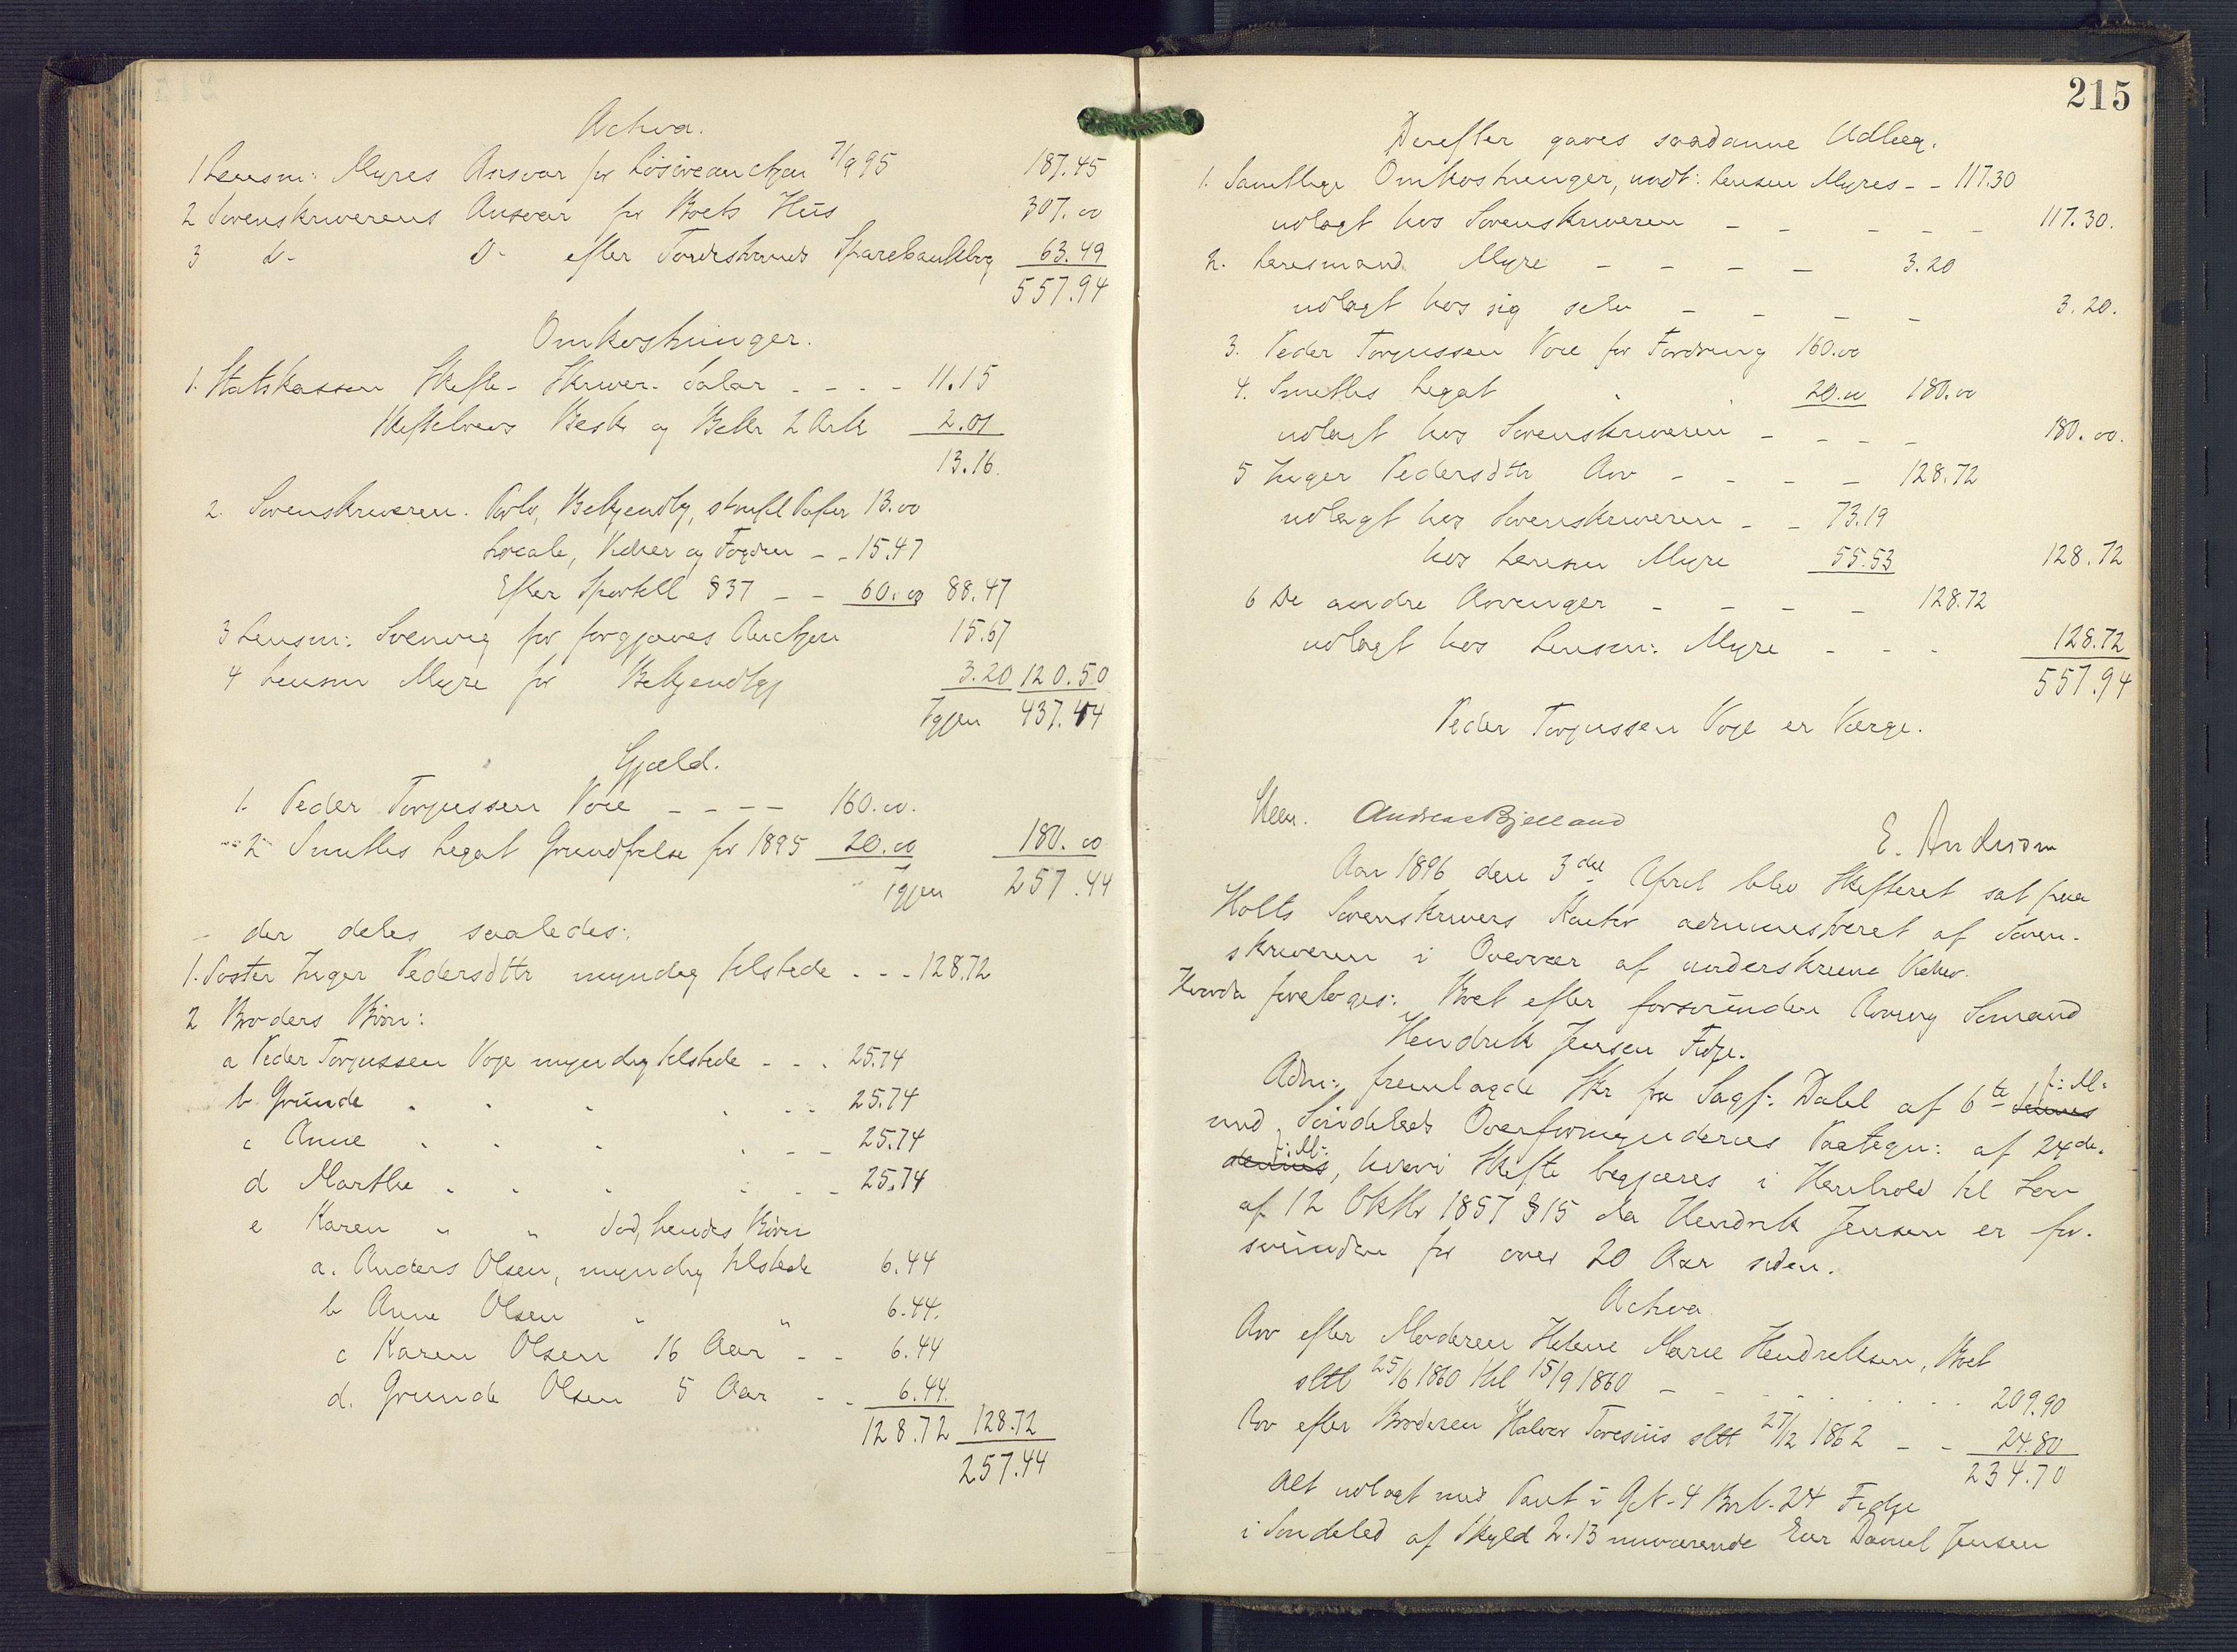 Activa.
1 Lensm: Myres Ansvar for Løsøreauctjon 7/9 95 187.45
2 Sorenskriverens Ansvar for Boets Hus 307.00
3 do Do efter Tvedestrands Sparebankbog 63.49
557.94
Omkostninger.
1. Statskassen Skifte- Skriver- Salær - - - - 11.15
Skiftebrevs Besk og Bekr 2 Ark 2.01
13.16.
2. Sorenskriveren. Porto, Bekjendtg, stempl Papir 13.00
Locale, Vidner og Fogden - - 15.47
Efter Sportell § 37 - - 60.00 88.47
3 Lensm: Svenvig for forgjæves Auctjon 15.67
4 Lensm Myre for Bekjendtgj 3.20 120.50
Igjen 437.44
Gjæld.
1. Peder Torjussen Voie - - - - 160.00.
2 Smiths Legat Grundfrelse for 1895 20.00 180.00
Igjen 257.44
der deles saaledes:
1. Søster Inger Pedersdttr myndig tilstede - - - 128.72
2 Broders Børn:
a Peder Torjussen Voje myndig tilstede - - . 25.74
b Grunde . . . . - - 25.74
c Anne . . . . - - 25.74
d Marthe . . . . - - 25.74
e Karen " " død, hendes Børn
a. Anders Olsen, myndig tilstede 6.44
b Anne Olsen " " 6.44.
c Karen Olsen 16 Aar - - 6.44
d. Grunde Olsen 5 Aar - - 6.44.
128.72 128.72
257.44
215
Derefter gaves saadanne Udlæg.
1. Samtlige Omkostninger, undt: Lensm Myres - - 117.30
udlagt hos Sorenskriveren - - - - - 117.30.
2. Lensmand Myre - - - - 3.20
udlagt hos sig selv - - - - 3.20.
3. Peder Torjussen Voie for Fordring 160.00
4. Smiths Legat . . 20.00 180.00
udlagt hos Sorenskriveren - - - - 180.00.
5 Inger Pedersdttr Arv - - - - 128.72
udlagt hos Sorenskriveren - - 73.19
hos Lensm Myre 55.53 128.72
6 De andre Arvinger - - - - 128.72
udlagt hos Lensm: Myre - - - 128.72
557.94
Peder Torjussen Voje er Værge.
Andreas Bjelland
E. Anderson
Aar 1896 den 3die April blev Skifteret sat paa
Holts Sorenskrivers Kontor administreret af Soren-
skriveren i Overvær af underskrevne Vidner.
Hvorda foretoges: Boet efter forsvunden Arving Sømand
Hendrik Jensen Fidje.
Adm: fremlagde Skr fra Sagf: Dahl af 6te f: M:
med Søndeleds Overformynderies Paategn: af 24de.
f: M:, hvori Skifte begjæres i Henhold til Lov
af 12 Oktbr 1857 § 15 da Hendrik Jensen er for-
svunden for over 20 Aar siden.
Activa
Arv efter Moderen Helene Marie Hendriksen, Boet
sltt 25/6 1860 till 15/9 1860 - - - - - - - 209.90
Arv efter Broderen Halvor Toresius sltt 27/12 1862 - - 24.80
234.70
Alt udlagt med Pant i Gb. 4 Bnb. 24 Fidje
i Søndeled af Skyld 2.13 nuværende Eier Daniel Jensen